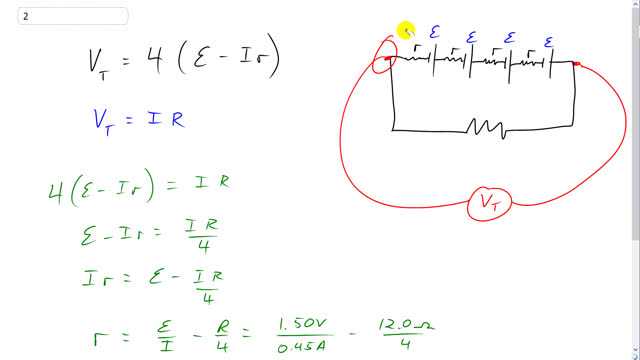 2
V_T = 4 ( ℰ − I r )
V_T = I R
4 ( ℰ − I r ) = I R
ℰ − I r = I R / 4
I r = ℰ − I R / 4
r = ℰ / I − R / 4 = 1.50V / 0.45A − 12.0Ω / 4
ℰ ℰ ℰ ℰ
r r r r
V_T